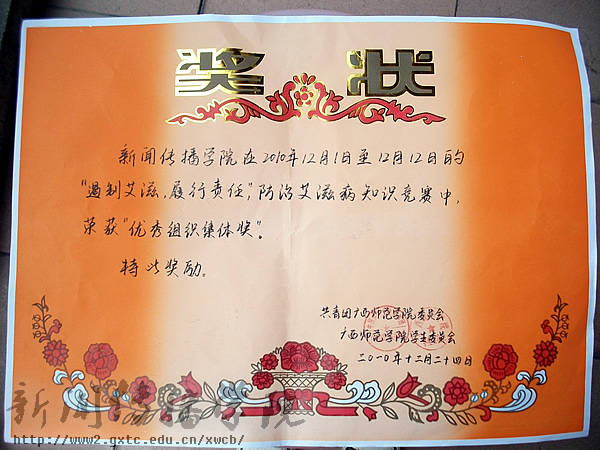 奖 状
新闻传播学院在2010年12月1日至12月12日的
"遏制艾滋,履行责任",防治艾滋病知识竞赛中,
荣获"优秀组织集体奖"。
特此奖励。
共青团广西师范学院委员会
广西师范学院学生委员会
二〇一〇年十二月二十四日
新闻传播学院
http://www2.gxtc.edu.cn/xwcb/